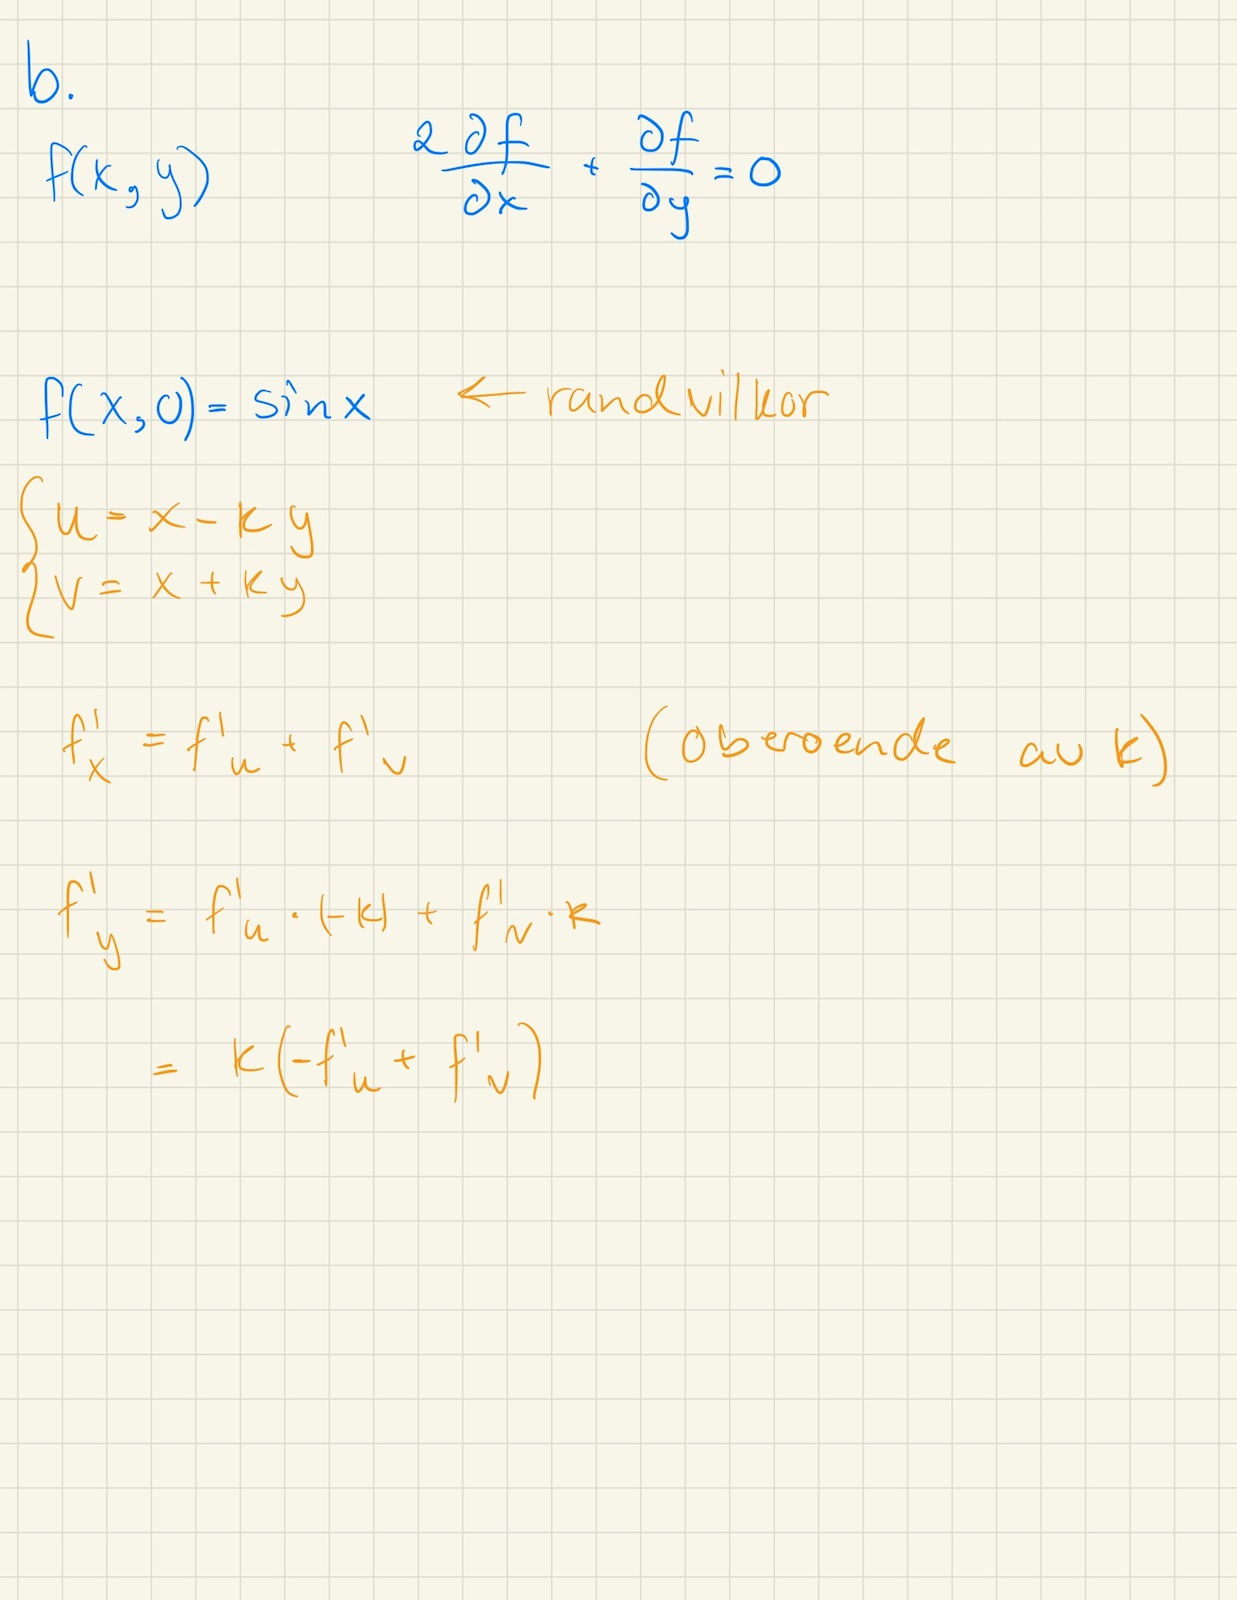 b.
f(x,y) 2∂f/∂x + ∂f/∂y = 0
f(x,0) = sin x ← randvilkor
{ u = x - ky
{ v = x + ky
f'x = f'u + f'v (oberoende av k)
f'y = f'u · (-k) + f'v · k
= k(-f'u + f'v)